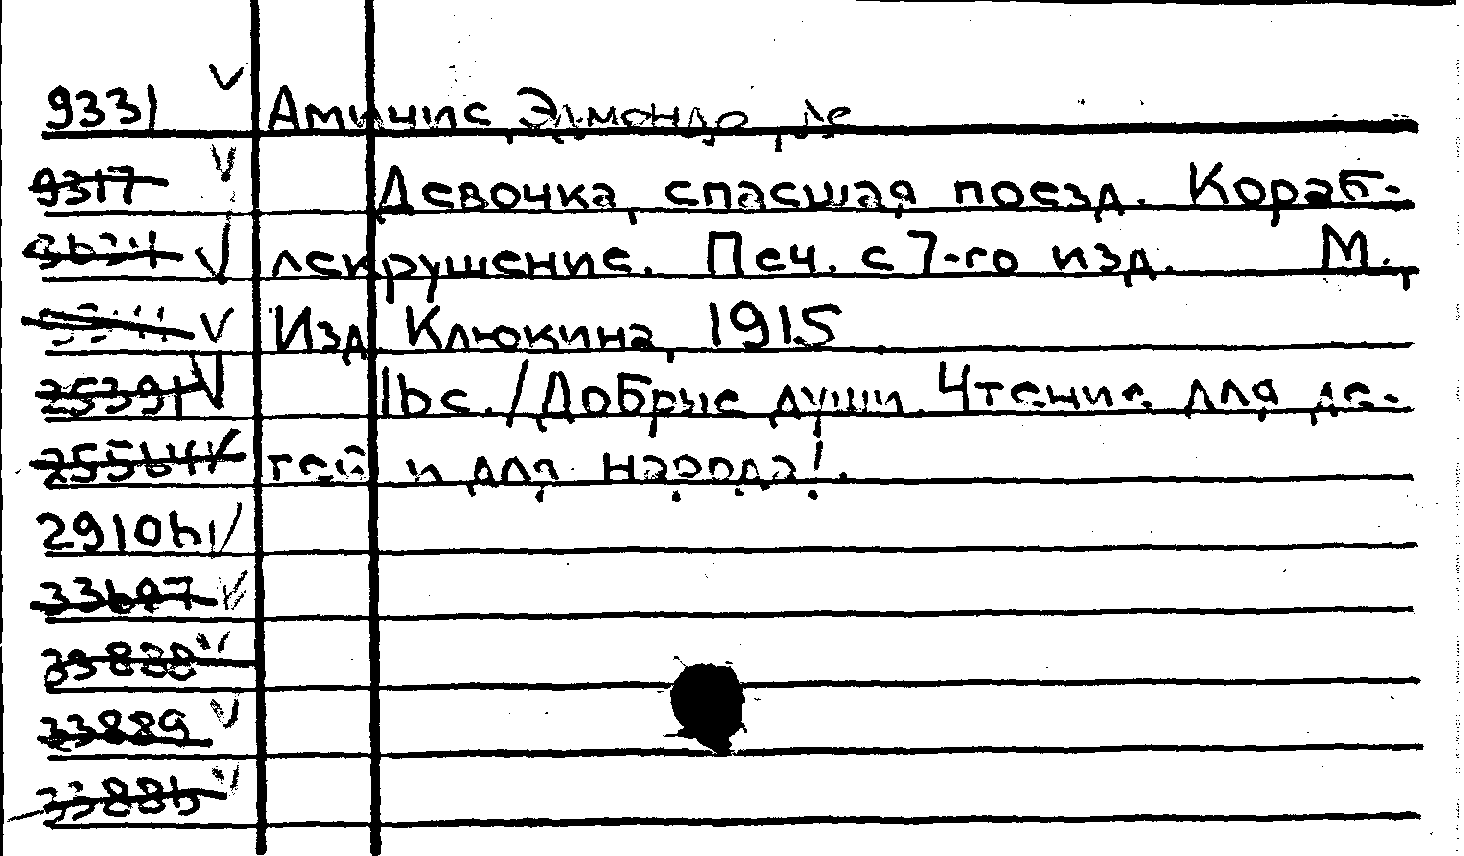 9331 Амичис, Эдмондо де
9317 Девочка, спасшая поезд. Кораб-
лекрушение. Печ. с 7-го изд. М.,
Изд. Клюкина, 1915.
25391 16 с. /Добрые души. Чтение для де-
25564 тей и для народа/.
29106
33697
33888
33889
33886